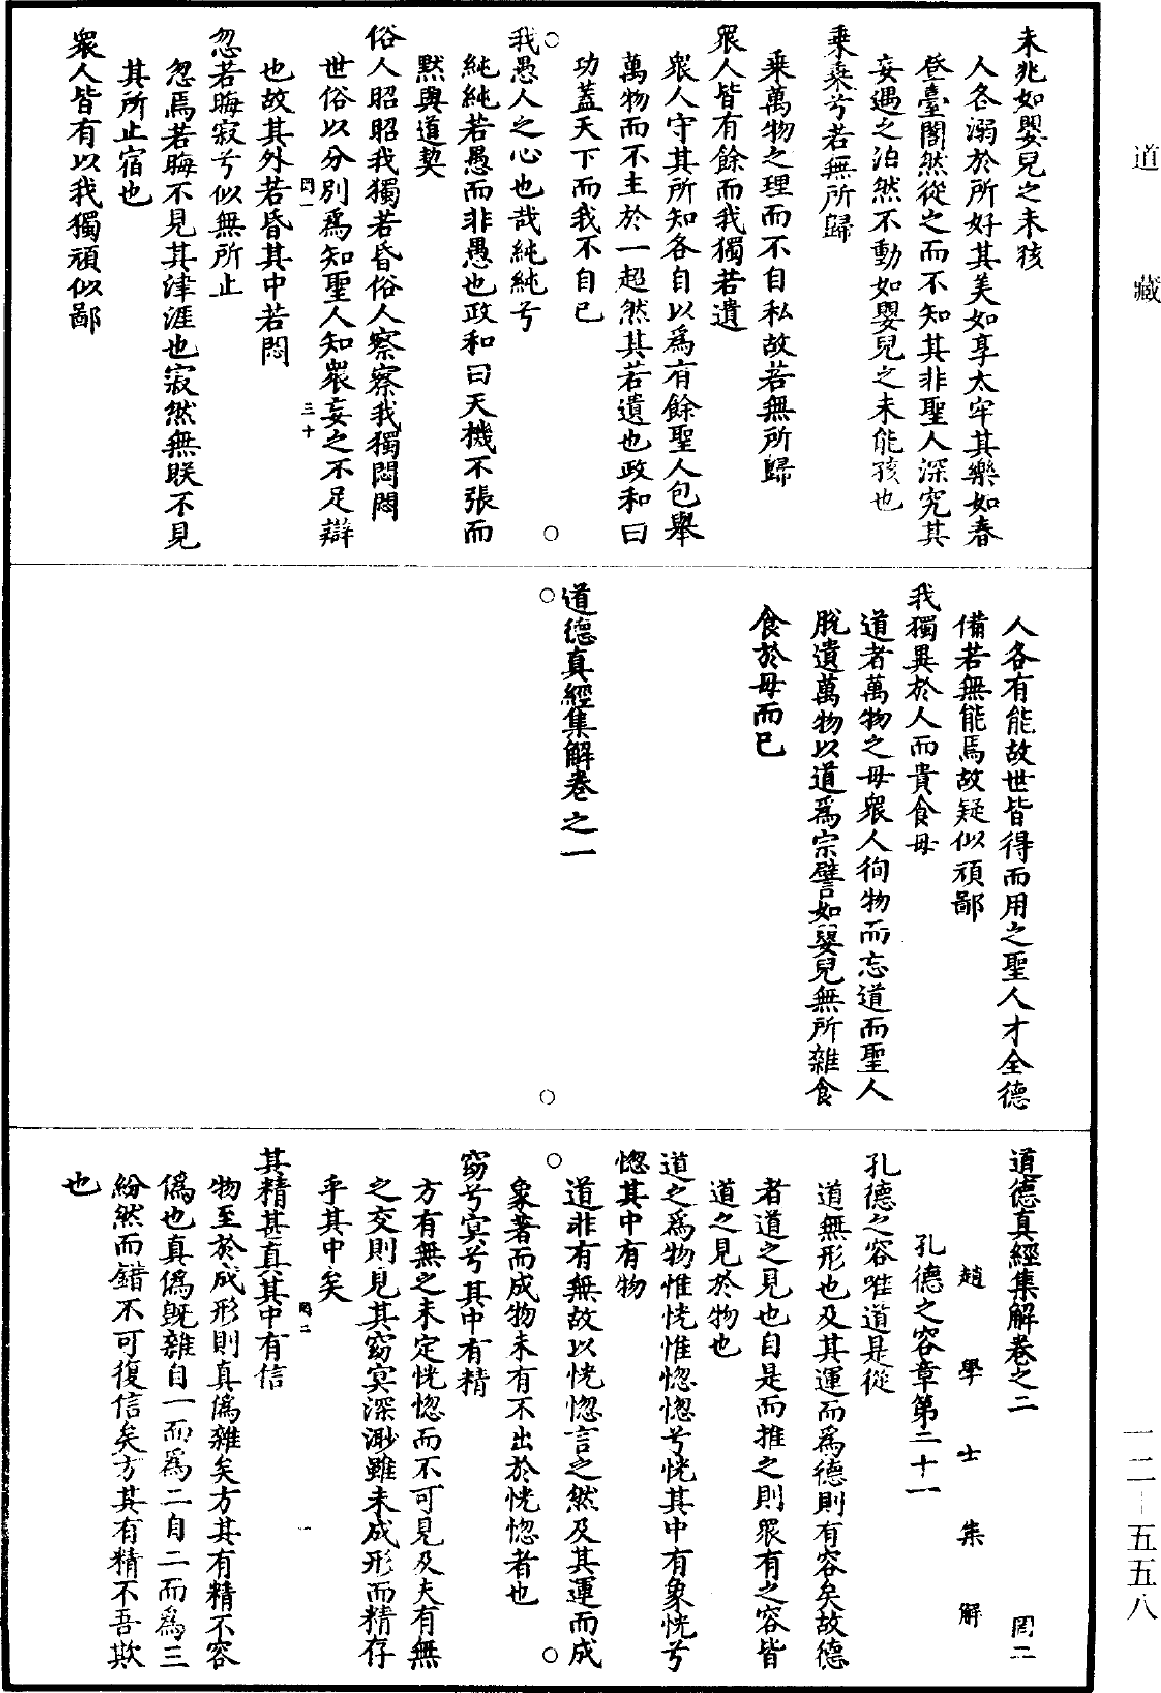 道藏
未兆如嬰兒之未孩
人各溺於所好其美如享太牢其樂如春
登臺闇然從之而不知其非聖人深究其
妄遇之泊然不動如嬰兒之未能孩也
乗乗兮若無所歸
乗萬物之理而不自私故若無所歸
衆人皆有餘而我獨若遺
衆人守其所知各自以爲有餘聖人包舉
萬物而不主於一超然其若遺也政和曰
功蓋天下而我不自已
我愚人之心也哉純純兮
純純若愚而非愚也政和曰天機不張而
黙與道契
俗人昭昭我獨若昏俗人察察我獨悶悶
世俗以分別爲知聖人知衆妄之不足辯
也故其外若昏其中若悶
罔一 三十
忽若晦寂兮似無所止
忽焉若晦不見其津涯也寂然無朕不見
其所止宿也
衆人皆有以我獨頑似鄙
人各有能故世皆得而用之聖人才全德
備若無能焉故疑似頑鄙
我獨異於人而貴食母
道者萬物之母衆人徇物而忘道而聖人
脫遺萬物以道爲宗譬如嬰兒無所雜食
食於母而已
道德真經集解卷之一
道德真經集解卷之二 罔二
趙學士集解
孔德之容章第二十一
孔德之容唯道是從
道無形也及其運而爲德則有容矣故德
者道之見也自是而推之則衆有之容皆
道之見於物也
道之爲物惟恍惟惚惚兮恍其中有象恍兮
惚其中有物
道非有無故以恍惚言之然及其運而成
象著而成物未有不出於恍惚者也
窈兮冥兮其中有精
方有無之未定恍惚而不可見及夫有無
之交則見其窈冥深渺雖未成形而精存
乎其中矣
罔二 一
其精甚真其中有信
物至於成形則真僞雜矣方其有精不容
僞也真僞既雜自一而爲二自二而爲三
紛然而錯不可復信矣方其有精不吾欺
也
一二—五五八